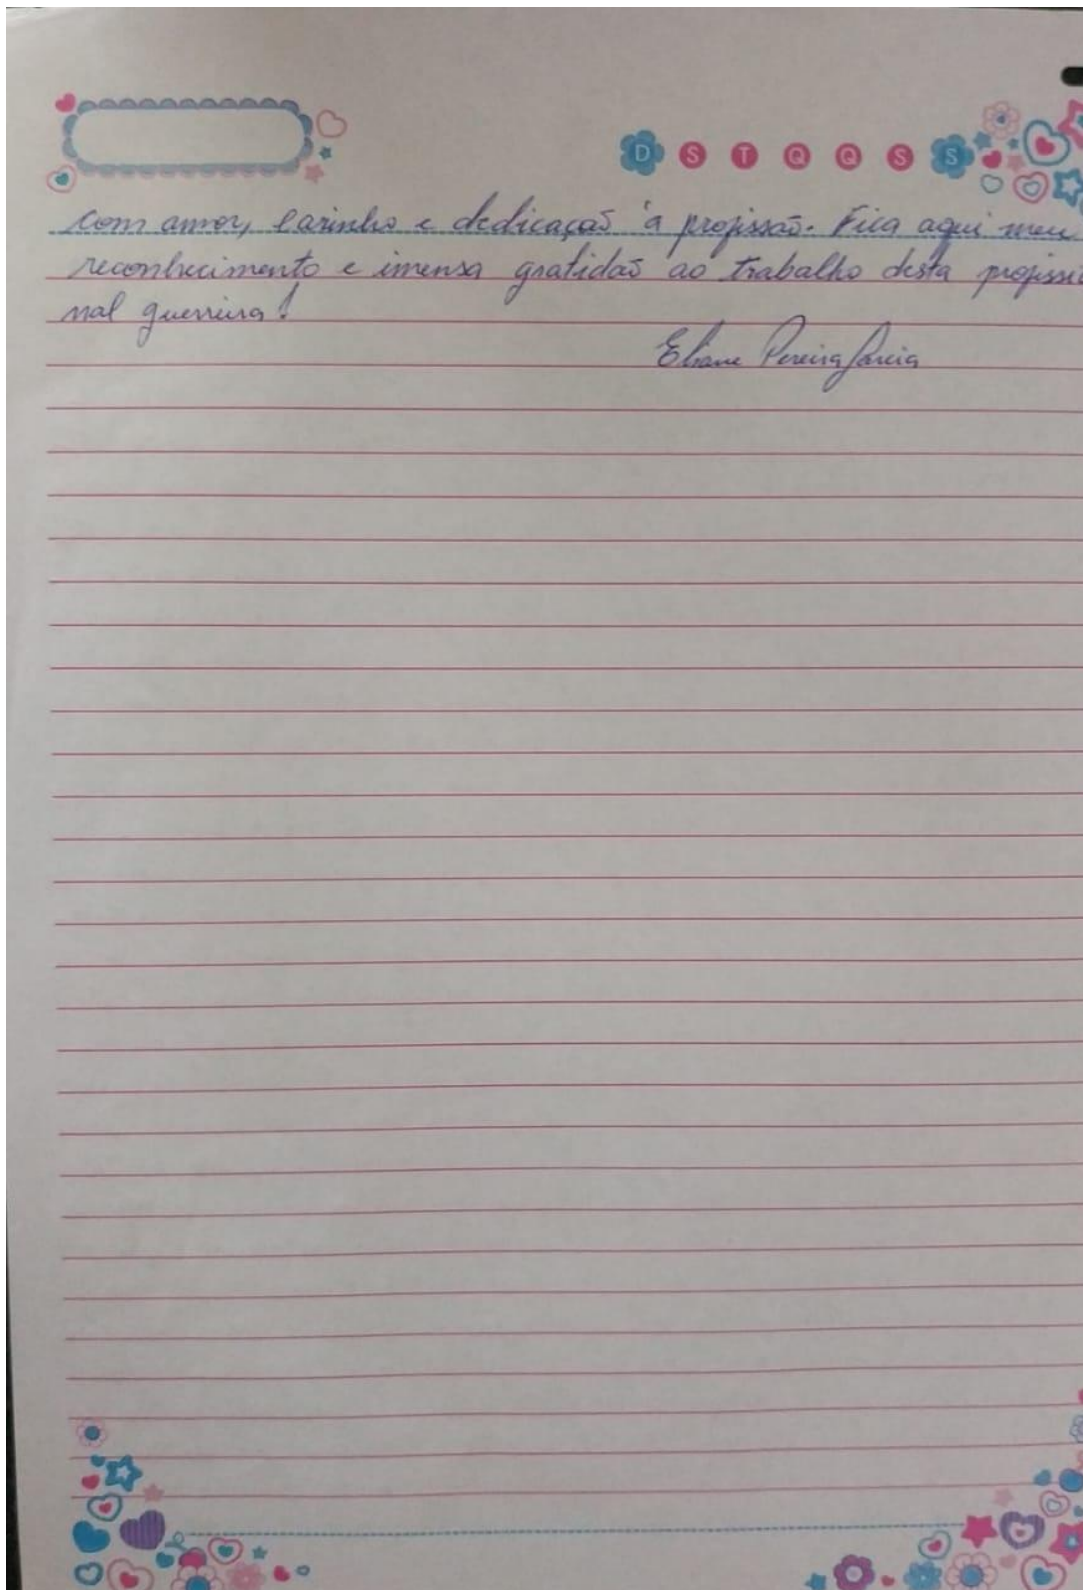 D S T Q Q S S
com amor, carinho e dedicação à profissão. Fica aqui meu
reconhecimento e imensa gratidão ao trabalho desta profissio
nal guerreira!
Eliane Pereira Garcia